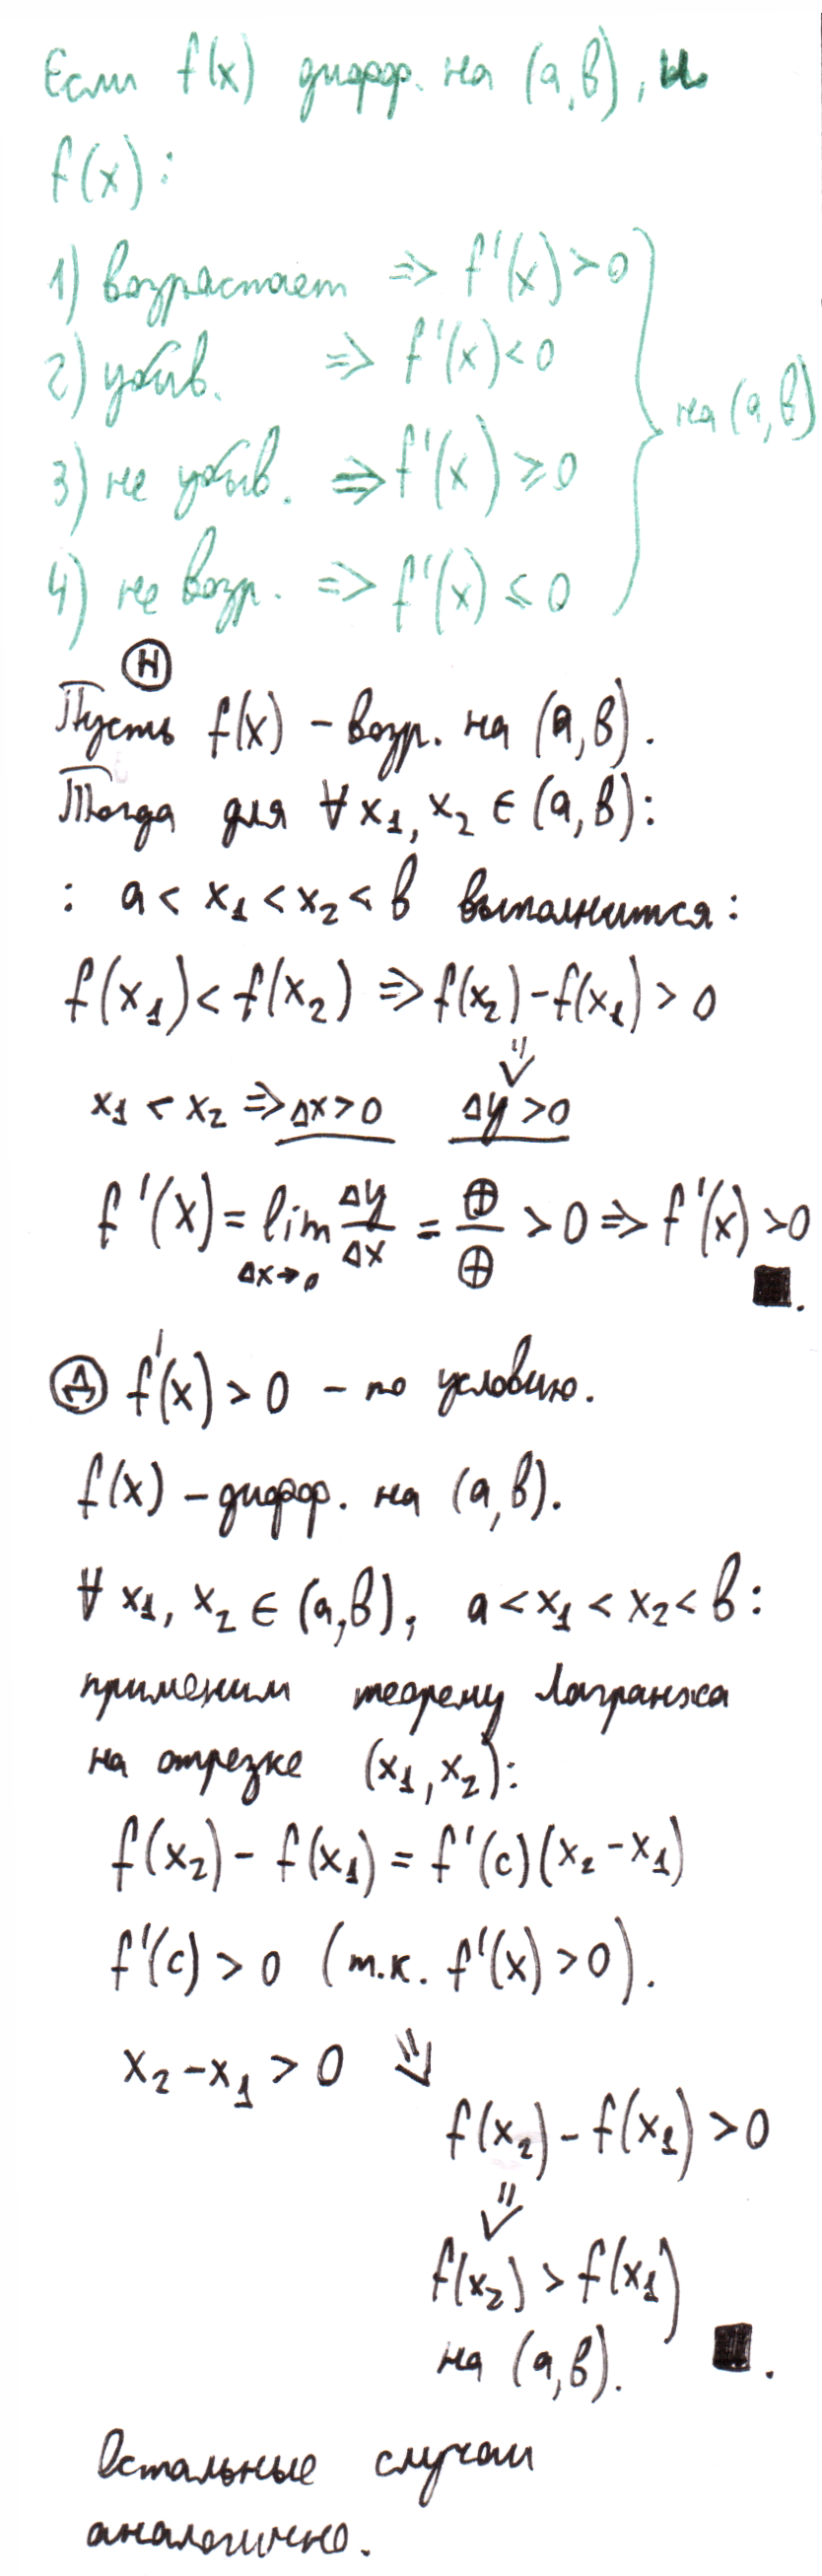 Если f(x) дифф. на (a,b), и
f(x):
1) возрастает => f'(x)>0
2) убыв. => f'(x)<0
3) не убыв. => f'(x)≥0
4) не возр. => f'(x)≤0
на (a,b)
Н
Пусть f(x) – возр. на (a,b).
Тогда для ∀ x₁, x₂ ∈ (a,b):
: a < x₁ < x₂ < b выполнится:
f(x₁) < f(x₂) => f(x₂) – f(x₁) > 0
x₁ < x₂ => Δx>0 Δy>0
f'(x) = lim Δy/Δx = ⊕/⊕ > 0 => f'(x) >0
Δx→0
■.
Д f'(x) > 0 – по условию.
f(x) – дифф. на (a,b).
∀ x₁, x₂ ∈ (a,b), a < x₁ < x₂ < b:
применим теорему Лагранжа
на отрезке (x₁, x₂):
f(x₂) – f(x₁) = f'(c)(x₂ – x₁)
f'(c) > 0 (т.к. f'(x) > 0).
x₂ – x₁ > 0 =>
f(x₂) – f(x₁) > 0
=>
f(x₂) > f(x₁)
на (a,b). ■.
Остальные случаи
аналогично.